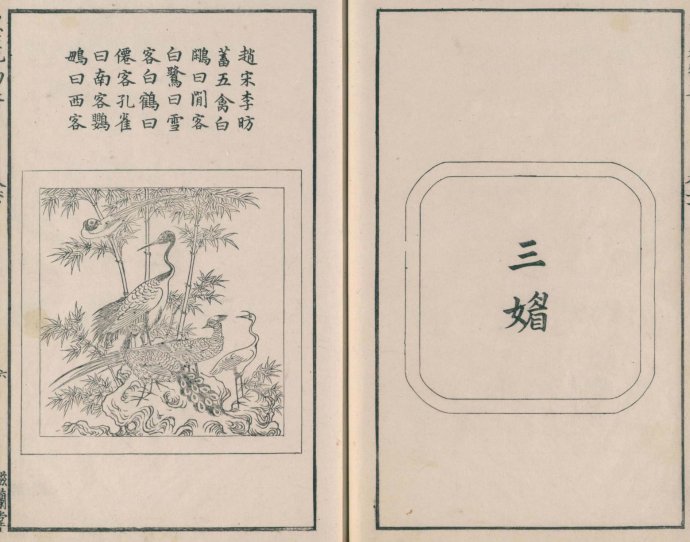 三
媚
趙宋李昉
蓄五禽白
鷴曰閒客
白鷺曰雪
客白鶴曰
僊客孔雀
曰南客鸚
䳇曰西客